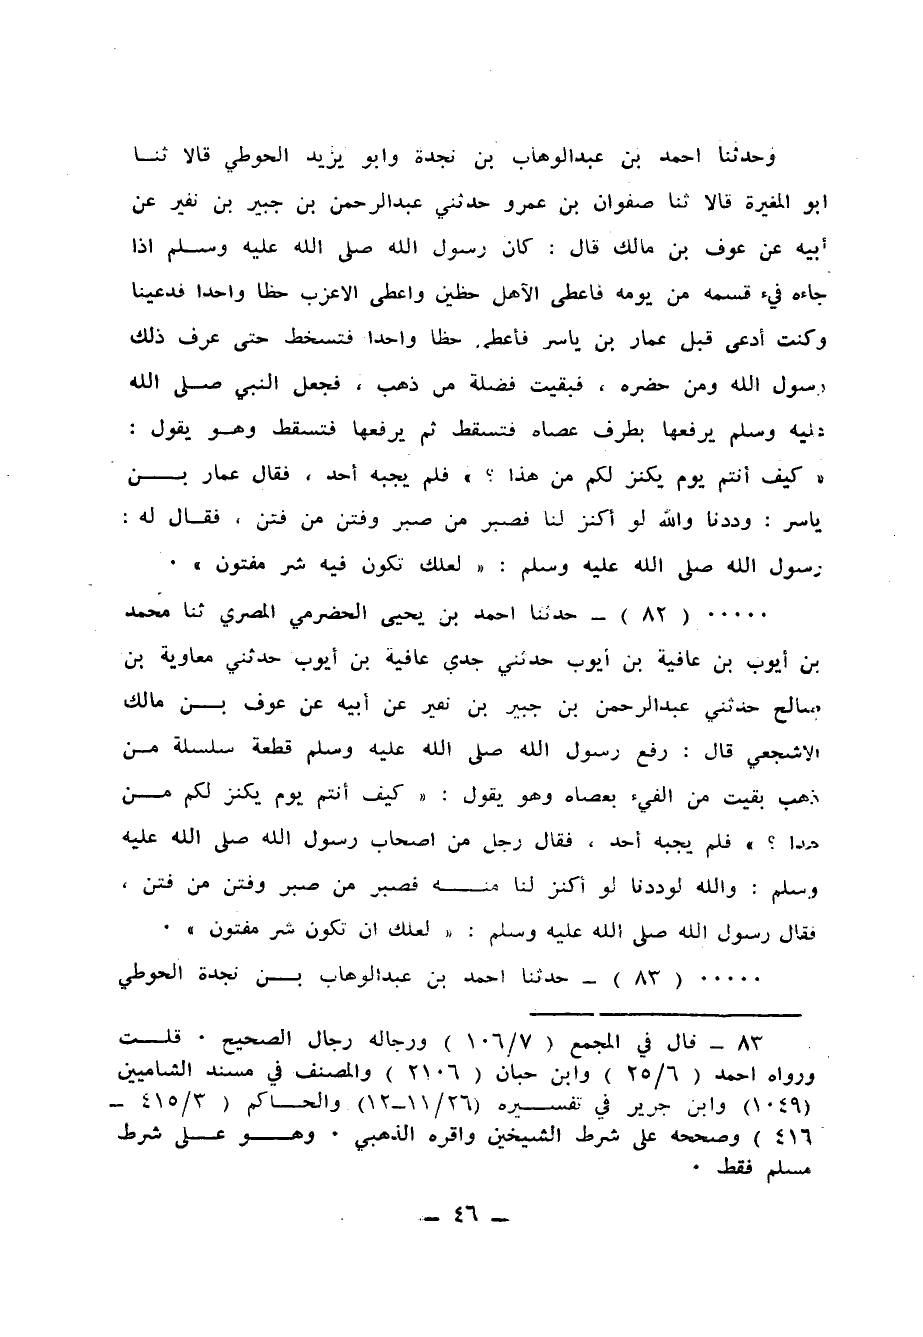 وحدثنا احمد بن عبدالوهاب بن نجدة وابو يزيد الحوطي قالا ثنا
ابو المغيرة قالا ثنا صفوان بن عمرو حدثني عبدالرحمن بن جبير بن نفير عن
أبيه عن عوف بن مالك قال : كان رسول الله صلى الله عليه وسلم اذا
جاءه فيء قسمه من يومه فاعطى الآهل حظين واعطى الاعزب حظا واحدا فدعينا
وكنت أدعى قبل عمار بن ياسر فأعطي حظا واحدا فتسخط حتى عرف ذلك
رسول الله ومن حضره ، فبقيت فضلة من ذهب ، فجعل النبي صلى الله
عليه وسلم يرفعها بطرف عصاه فتسقط ثم يرفعها فتسقط وهو يقول :
« كيف أنتم يوم يكنز لكم من هذا ؟ » فلم يجبه أحد ، فقال عمار بن
ياسر : وددنا والله لو أكنز لنا فصبر من صبر وفتن من فتن ، فقال له :
رسول الله صلى الله عليه وسلم : « لعلك تكون فيه شر مفتون » ٠
٠٠٠٠٠ ( ٨٢ ) ـ حدثنا احمد بن يحيى الحضرمي المصري ثنا محمد
بن أيوب بن عافية بن أيوب حدثني جدي عافية بن أيوب حدثني معاوية بن
صالح حدثني عبدالرحمن بن جبير بن نفير عن أبيه عن عوف بن مالك
الاشجعي قال : رفع رسول الله صلى الله عليه وسلم قطعة سلسلة من
ذهب بقيت من الفيء بعصاه وهو يقول : « كيف أنتم يوم يكنز لكم من
هذا ؟ » فلم يجبه أحد ، فقال رجل من اصحاب رسول الله صلى الله عليه
وسلم : والله لوددنا لو أكنز لنا منه فصبر من صبر وفتن من فتن ،
فقال رسول الله صلى الله عليه وسلم : « لعلك ان تكون شر مفتون » ٠
٠٠٠٠٠ ( ٨٣ ) ـ حدثنا احمد بن عبدالوهاب بن نجدة الحوطي
٨٣ ـ قال في المجمع ( ١٠٦/٧ ) ورجاله رجال الصحيح ٠ قلت
ورواه احمد ( ٢٥/٦ ) وابن حبان ( ٢١٠٦ ) والمصنف في مسند الشاميين
(١٠٤٩) وابن جرير في تفسيره (١١/٢٦ـ١٢) والحاكم ( ٤١٥/٣ ـ
٤١٦ ) وصححه على شرط الشيخين واقره الذهبي ٠ وهو على شرط
مسلم فقط ٠
ـ ٤٦ ـ